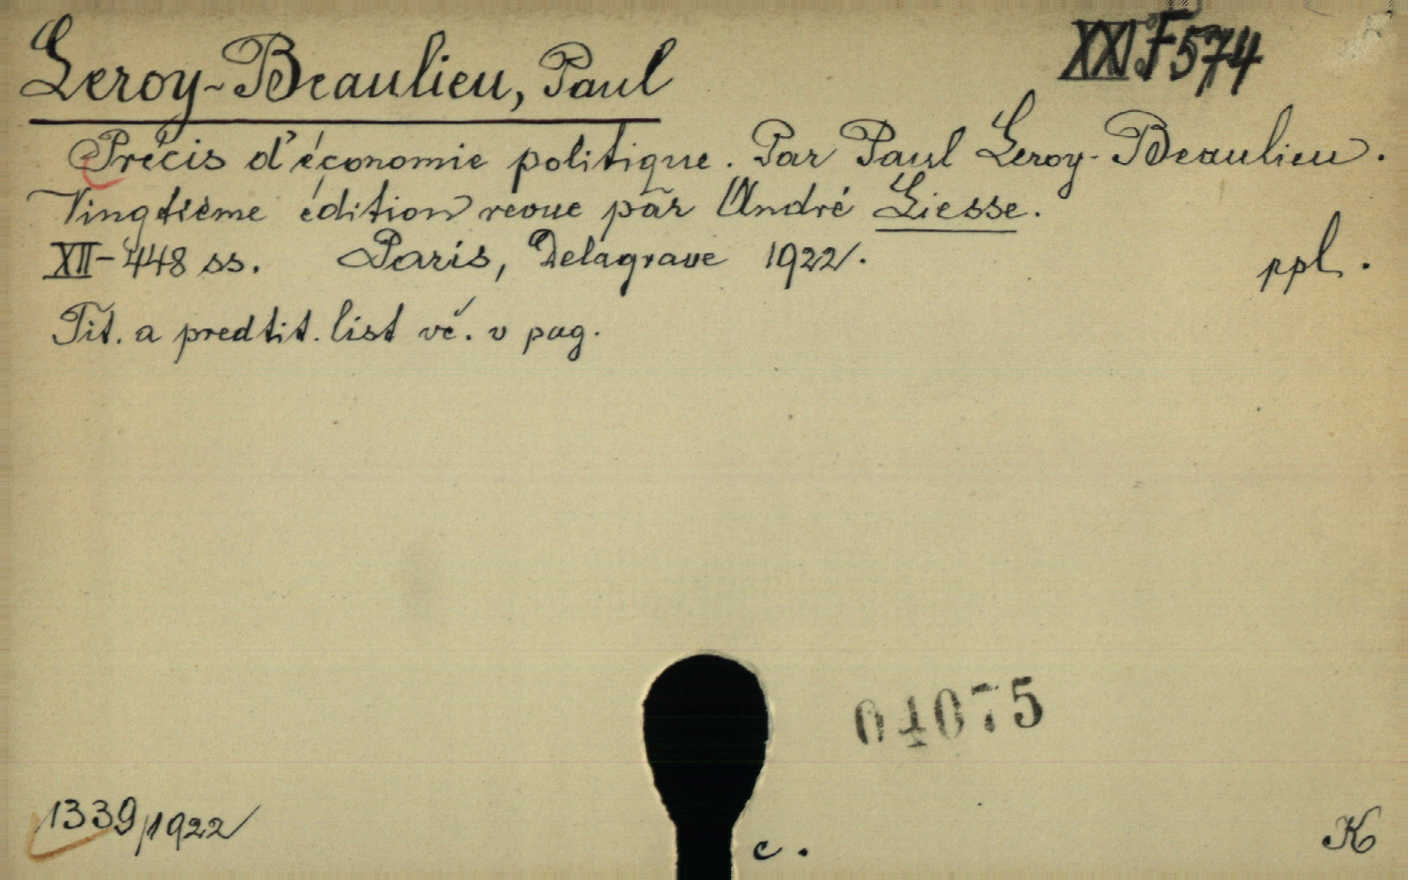 XXI F 574
Leroy-Beaulieu, Paul
Précis d'économie politique. Par Paul Leroy-Beaulieu.
Vingtième édition revue par André Liesse.
XII-448 ss. Paris, Delagrave 1922. ppl.
Tit. a predtit. list vč. v pag.
04075
1339/1922
c.
K